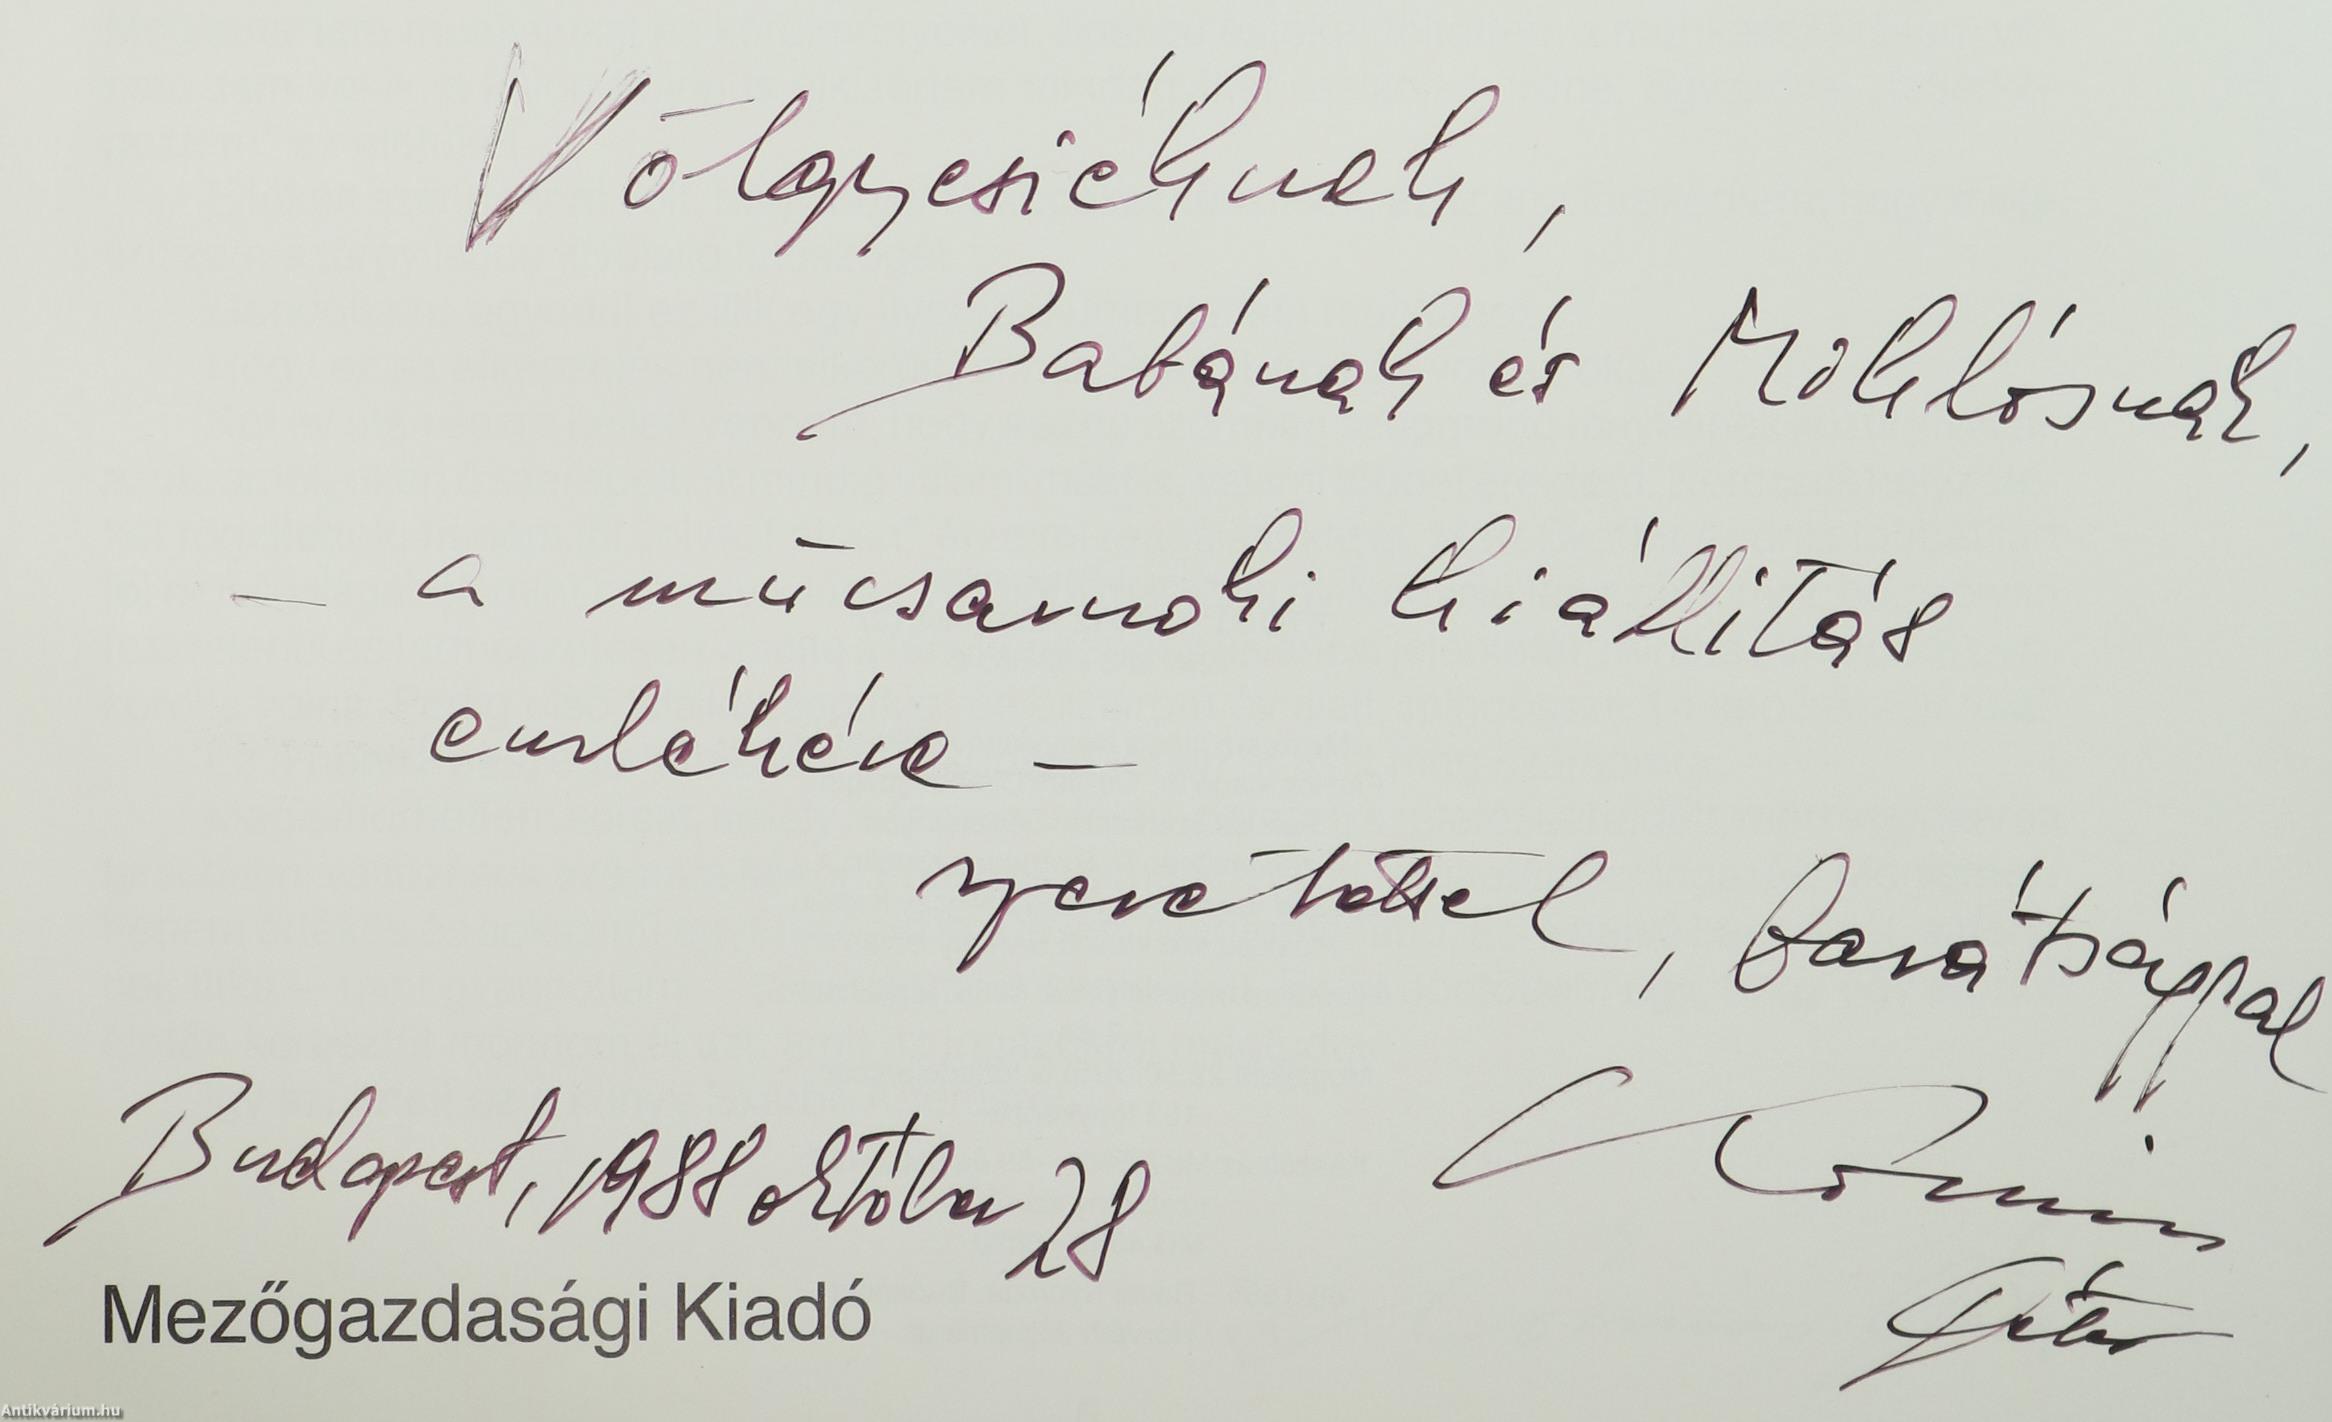 Völgyesiéknek,
Babának és Miklósnak,
– a műcsarnoki kiállítás
emlékére –
szeretettel, barátsággal
Budapest, 1988 október 28
Péter
Mezőgazdasági Kiadó
Antikvárium.hu